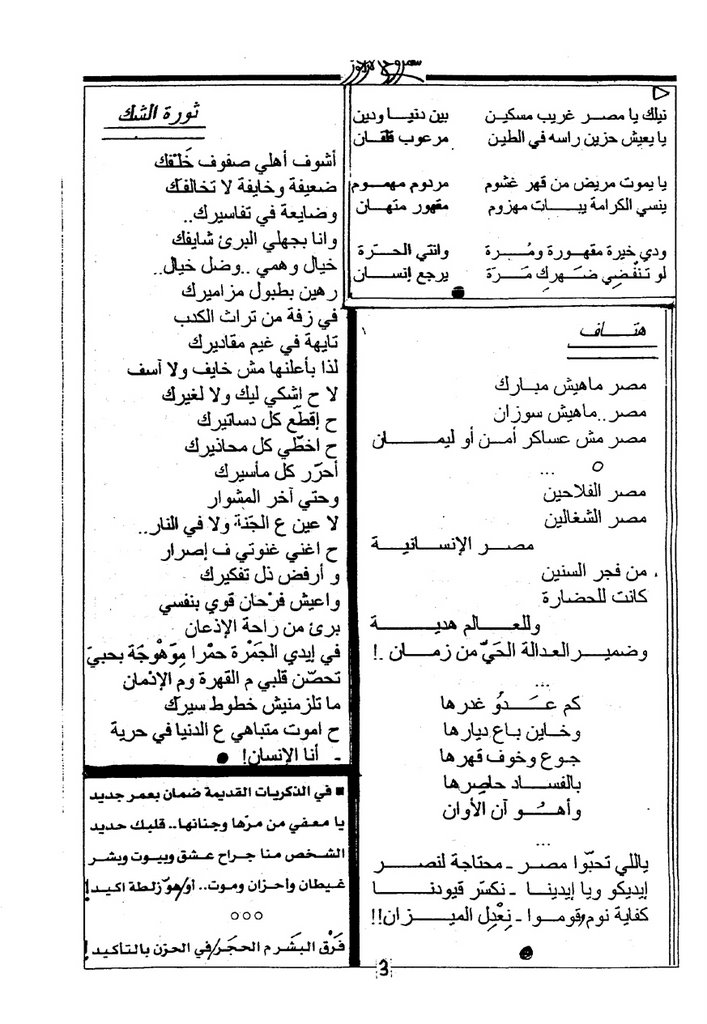 نيلك يا مصر غريب مسكين بين دنيا ودين
يا يعيش حزين راسه في الطين مرعوب قلقان
يا يموت مريض من قهر غشوم مردوم مهموم
ينسي الكرامة يبات مهزوم مقهور متهان
ودي خيرة مقهورة ومُرة وانتي الحرّة
لو تنْفُضي ضهرِك مَرّة يرجع إنسان
هتاف
مصر ماهيش مبارك
مصر..ماهيش سوزان
مصر مش عساكر أمن أو ليمان
...
مصر الفلاحين
مصر الشغالين
مصر الإنسانية
من فجر السنين
كانت للحضارة
وللعالم هدية
وضمير العدالة الحَيّ من زمان .!
...
كم عَدوُ غدرها
وخاين باع ديارها
جوع وخوف قهرها
بالفساد حاصِرها
وأهو آن الأوان
...
ياللي تحبّوا مصر - محتاجة لنصر
إيديكو ويا إيدينا - نكسّر قيودنا
كفاية نوم وقوموا - نِعْدِل الميزان!!
ثورة الشك
أشوف أهلي صفوف خَلْفك
ضعيفة وخايفة لا تخالفك
وضايعة في تفاسيرك..
وانا بجهلي البرئ شايفك
خيال وهمي ..وضل خيال..
رهين بطبول مزاميرك
في زفة من تراث الكدب
تايهة في غيم مقاديرك
لذا بأعلنها مش خايف ولا آسف
لا ح اشكي ليك ولا لغيرك
ح إقطّع كل دساتيرك
ح اخطّي كل محاذيرك
أحرّر كل مأسيرك
وحتي آخر المشوار
لا عين ع الجَنة ولا في النار..
ح اغني غنوتي ف إصرار
و أرفض ذل تفكيرك
واعيش فرْحان قوي بنفسي
برئ من راحة الإذعان
في إيدي الجَمْرة حمْرا مِوَهْوِجَة بحبيَ
تحصّن قلبي م القهرة وم الإدْمان
ما تلزمنيش خطوط سيرك
ح اموت متباهي ع الدنيا في حرية
- أنا الإنسان!
■ في الذكريات القديمة ضمان بعمر جديد
يا معفي من مرّها وجنانها.. قلبك حديد
الشخص منا جراح عشق وبيوت وبشر
غيطان وأحزان وموت.. أو/هوّ زلطة اكيد!
○○○
فَرْق البشَر م الحجَر/في الحزن بالتأكيد!
3